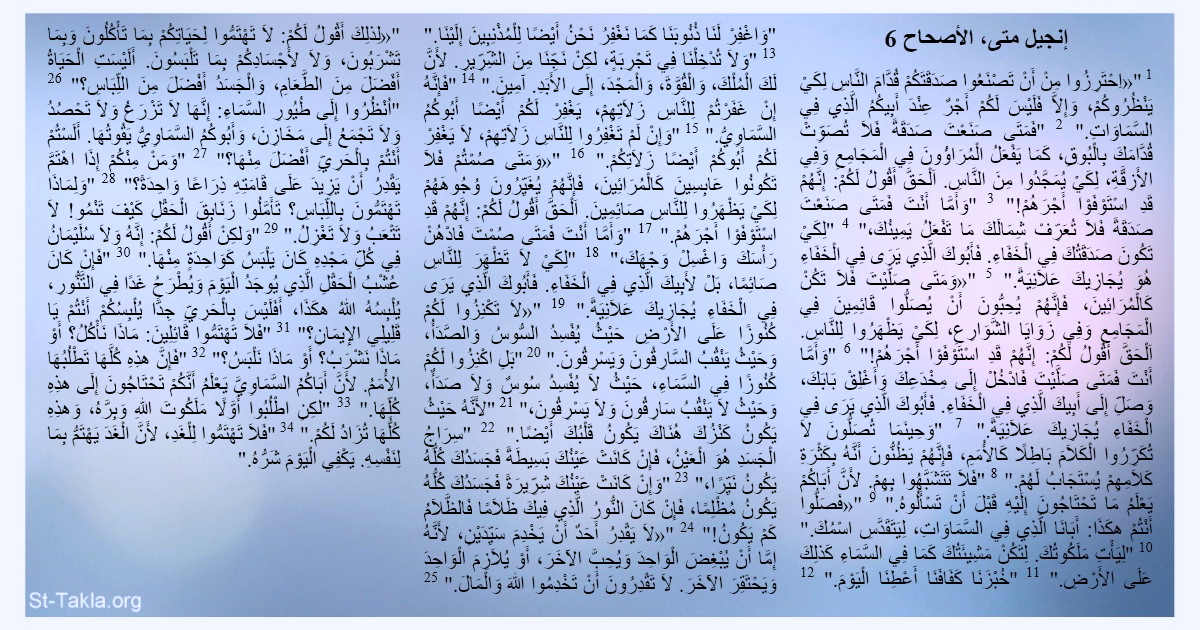 إنجيل متى، الأصحاح 6
1 "«اِحْتَرِزُوا مِنْ أَنْ تَصْنَعُوا صَدَقَتَكُمْ قُدَّامَ النَّاسِ لِكَيْ
يَنْظُرُوكُمْ، وَإِلاَّ فَلَيْسَ لَكُمْ أَجْرٌ عِنْدَ أَبِيكُمُ الَّذِي فِي
السَّمَاوَاتِ." 2 "فَمَتَى صَنَعْتَ صَدَقَةً فَلاَ تُصَوِّتْ
قُدَّامَكَ بِالْبُوقِ، كَمَا يَفْعَلُ الْمُرَاؤُونَ فِي الْمَجَامِعِ وَفِي
الأَزِقَّةِ، لِكَيْ يُمَجَّدُوا مِنَ النَّاسِ. اَلْحَقَّ أَقُولُ لَكُمْ: إِنَّهُمْ
قَدِ اسْتَوْفَوْا أَجْرَهُمْ!" 3 "وَأَمَّا أَنْتَ فَمَتَى صَنَعْتَ
صَدَقَةً فَلاَ تُعَرِّفْ شِمَالَكَ مَا تَفْعَلُ يَمِينُكَ،" 4 "لِكَيْ
تَكُونَ صَدَقَتُكَ فِي الْخَفَاءِ. فَأَبُوكَ الَّذِي يَرَى فِي الْخَفَاءِ
هُوَ يُجَازِيكَ عَلاَنِيَةً." 5 "«وَمَتَى صَلَّيْتَ فَلاَ تَكُنْ
كَالْمُرَائِينَ، فَإِنَّهُمْ يُحِبُّونَ أَنْ يُصَلُّوا قَائِمِينَ فِي
الْمَجَامِعِ وَفِي زَوَايَا الشَّوَارِعِ، لِكَيْ يَظْهَرُوا لِلنَّاسِ.
اَلْحَقَّ أَقُولُ لَكُمْ: إِنَّهُمْ قَدِ اسْتَوْفَوْا أَجْرَهُمْ!" 6 "وَأَمَّا
أَنْتَ فَمَتَى صَلَّيْتَ فَادْخُلْ إِلَى مِخْدَعِكَ وَأَغْلِقْ بَابَكَ،
وَصَلِّ إِلَى أَبِيكَ الَّذِي فِي الْخَفَاءِ. فَأَبُوكَ الَّذِي يَرَى فِي
الْخَفَاءِ يُجَازِيكَ عَلاَنِيَةً." 7 "وَحِينَمَا تُصَلُّونَ لاَ
تُكَرِّرُوا الْكَلاَمَ بَاطِلًا كَالأُمَمِ، فَإِنَّهُمْ يَظُنُّونَ أَنَّهُ بِكَثْرَةِ
كَلاَمِهِمْ يُسْتَجَابُ لَهُمْ." 8 "فَلاَ تَتَشَبَّهُوا بِهِمْ. لأَنَّ أَبَاكُمْ
يَعْلَمُ مَا تَحْتَاجُونَ إِلَيْهِ قَبْلَ أَنْ تَسْأَلُوهُ." 9 "«فَصَلُّوا
أَنْتُمْ هكَذَا: أَبَانَا الَّذِي فِي السَّمَاوَاتِ، لِيَتَقَدَّسِ اسْمُكَ."
10 "لِيَأْتِ مَلَكُوتُكَ. لِتَكُنْ مَشِيئَتُكَ كَمَا فِي السَّمَاءِ كَذلِكَ
عَلَى الأَرْضِ." 11 "خُبْزَنَا كَفَافَنَا أَعْطِنَا الْيَوْمَ." 12
"وَاغْفِرْ لَنَا ذُنُوبَنَا كَمَا نَغْفِرُ نَحْنُ أَيْضًا لِلْمُذْنِبِينَ إِلَيْنَا."
13 "وَلاَ تُدْخِلْنَا فِي تَجْرِبَةٍ، لكِنْ نَجِّنَا مِنَ الشِّرِّيرِ. لأَنَّ
لَكَ الْمُلْكَ، وَالْقُوَّةَ، وَالْمَجْدَ، إِلَى الأَبَدِ. آمِينَ." 14 "فَإِنَّهُ
إِنْ غَفَرْتُمْ لِلنَّاسِ زَلاَتِهِمْ، يَغْفِرْ لَكُمْ أَيْضًا أَبُوكُمُ
السَّمَاوِيُّ." 15 "وَإِنْ لَمْ تَغْفِرُوا لِلنَّاسِ زَلاَتِهِمْ، لاَ يَغْفِرْ
لَكُمْ أَبُوكُمْ أَيْضًا زَلاَتِكُمْ." 16 "«وَمَتَى صُمْتُمْ فَلاَ
تَكُونُوا عَابِسِينَ كَالْمُرَائِينَ، فَإِنَّهُمْ يُغَيِّرُونَ وُجُوهَهُمْ
لِكَيْ يَظْهَرُوا لِلنَّاسِ صَائِمِينَ. اَلْحَقَّ أَقُولُ لَكُمْ: إِنَّهُمْ قَدِ
اسْتَوْفَوْا أَجْرَهُمْ." 17 "وَأَمَّا أَنْتَ فَمَتَى صُمْتَ فَادْهُنْ
رَأْسَكَ وَاغْسِلْ وَجْهَكَ،" 18 "لِكَيْ لاَ تَظْهَرَ لِلنَّاسِ
صَائِمًا، بَلْ لأَبِيكَ الَّذِي فِي الْخَفَاءِ. فَأَبُوكَ الَّذِي يَرَى
فِي الْخَفَاءِ يُجَازِيكَ عَلاَنِيَةً." 19 "«لاَ تَكْنِزُوا لَكُمْ
كُنُوزًا عَلَى الأَرْضِ حَيْثُ يُفْسِدُ السُّوسُ وَالصَّدَأُ،
وَحَيْثُ يَنْقُبُ السَّارِقُونَ وَيَسْرِقُونَ." 20 "بَلِ اكْنِزُوا لَكُمْ
كُنُوزًا فِي السَّمَاءِ، حَيْثُ لاَ يُفْسِدُ سُوسٌ وَلاَ صَدَأٌ،
وَحَيْثُ لاَ يَنْقُبُ سَارِقُونَ وَلاَ يَسْرِقُونَ،" 21 "لأَنَّهُ حَيْثُ
يَكُونُ كَنْزُكَ هُنَاكَ يَكُونُ قَلْبُكَ أَيْضًا." 22 "سِرَاجُ
الْجَسَدِ هُوَ الْعَيْنُ، فَإِنْ كَانَتْ عَيْنُكَ بَسِيطَةً فَجَسَدُكَ كُلُّهُ
يَكُونُ نَيِّرًا،" 23 "وَإِنْ كَانَتْ عَيْنُكَ شِرِّيرَةً فَجَسَدُكَ كُلُّهُ
يَكُونُ مُظْلِمًا، فَإِنْ كَانَ النُّورُ الَّذِي فِيكَ ظَلاَمًا فَالظَّلاَمُ
كَمْ يَكُونُ!" 24 "«لاَ يَقْدِرُ أَحَدٌ أَنْ يَخْدِمَ سَيِّدَيْنِ، لأَنَّهُ
إِمَّا أَنْ يُبْغِضَ الْوَاحِدَ وَيُحِبَّ الآخَرَ، أَوْ يُلاَزِمَ الْوَاحِدَ
وَيَحْتَقِرَ الآخَرَ. لاَ تَقْدِرُونَ أَنْ تَخْدِمُوا اللهَ وَالْمَالَ." 25
"«لِذلِكَ أَقُولُ لَكُمْ: لاَ تَهْتَمُّوا لِحَيَاتِكُمْ بِمَا تَأْكُلُونَ وَبِمَا
تَشْرَبُونَ، وَلاَ لأَجْسَادِكُمْ بِمَا تَلْبَسُونَ. أَلَيْسَتِ الْحَيَاةُ
أَفْضَلَ مِنَ الطَّعَامِ، وَالْجَسَدُ أَفْضَلَ مِنَ اللِّبَاسِ؟" 26
"اُنْظُرُوا إِلَى طُيُورِ السَّمَاءِ: إِنَّهَا لاَ تَزْرَعُ وَلاَ تَحْصُدُ
وَلاَ تَجْمَعُ إِلَى مَخَازِنَ، وَأَبُوكُمُ السَّمَاوِيُّ يَقُوتُهَا. أَلَسْتُمْ
أَنْتُمْ بِالْحَرِيِّ أَفْضَلَ مِنْهَا؟" 27 "وَمَنْ مِنْكُمْ إِذَا اهْتَمَّ
يَقْدِرُ أَنْ يَزِيدَ عَلَى قَامَتِهِ ذِرَاعًا وَاحِدَةً؟" 28 "وَلِمَاذَا
تَهْتَمُّونَ بِاللِّبَاسِ؟ تَأَمَّلُوا زَنَابِقَ الْحَقْلِ كَيْفَ تَنْمُو! لاَ
تَتْعَبُ وَلاَ تَغْزِلُ." 29 "وَلكِنْ أَقُولُ لَكُمْ: إِنَّهُ وَلاَ سُلَيْمَانُ
فِي كُلِّ مَجْدِهِ كَانَ يَلْبَسُ كَوَاحِدَةٍ مِنْهَا." 30 "فَإِنْ كَانَ
عُشْبُ الْحَقْلِ الَّذِي يُوجَدُ الْيَوْمَ وَيُطْرَحُ غَدًا فِي التَّنُّورِ،
يُلْبِسُهُ اللهُ هكَذَا، أَفَلَيْسَ بِالْحَرِيِّ جِدًّا يُلْبِسُكُمْ أَنْتُمْ يَا
قَلِيلِي الإِيمَانِ؟" 31 "فَلاَ تَهْتَمُّوا قَائِلِينَ: مَاذَا نَأْكُلُ؟ أَوْ
مَاذَا نَشْرَبُ؟ أَوْ مَاذَا نَلْبَسُ؟" 32 "فَإِنَّ هذِهِ كُلَّهَا تَطْلُبُهَا
الأُمَمُ. لأَنَّ أَبَاكُمُ السَّمَاوِيَّ يَعْلَمُ أَنَّكُمْ تَحْتَاجُونَ إِلَى هذِهِ
كُلِّهَا." 33 "لكِنِ اطْلُبُوا أَوَّلًا مَلَكُوتَ اللهِ وَبِرَّهُ، وَهذِهِ
كُلُّهَا تُزَادُ لَكُمْ." 34 "فَلاَ تَهْتَمُّوا لِلْغَدِ، لأَنَّ الْغَدَ يَهْتَمُّ بِمَا
لِنَفْسِهِ. يَكْفِي الْيَوْمَ شَرُّهُ."
St-Takla.org